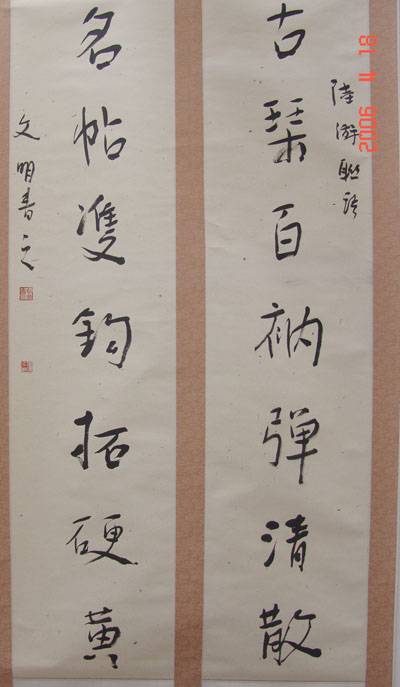 陸游聯語
古琹百衲弹清散
名帖雙鈎拓硬黄
文明書之
2006 4 18